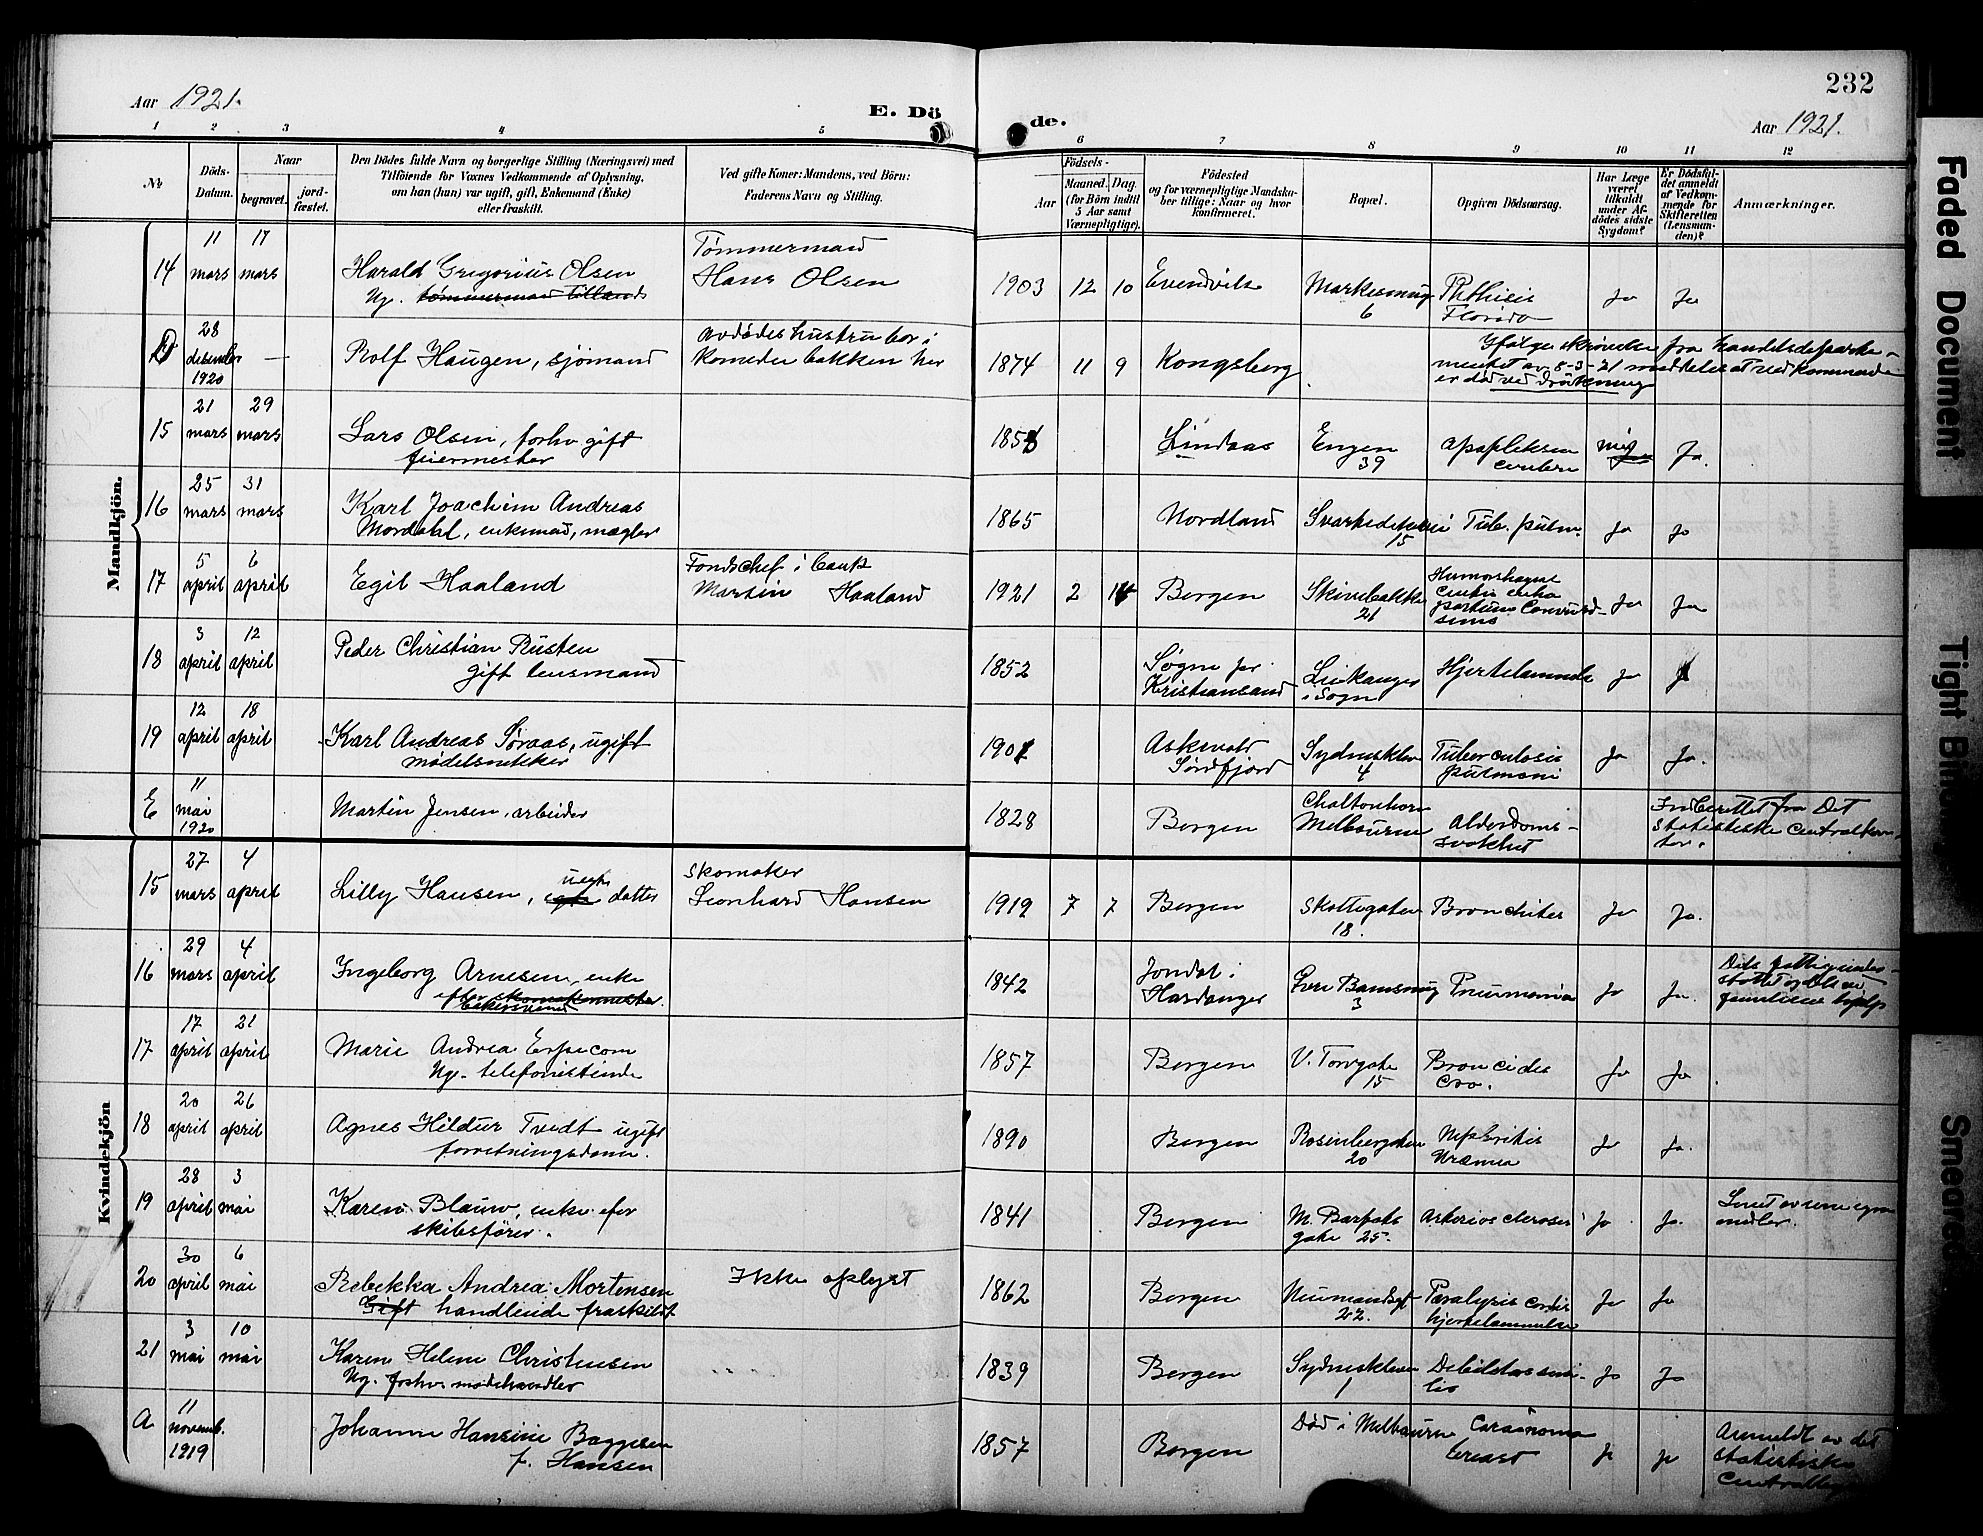 232
Aar 1921.
E. Döde.
Aar 1921.
1 2 3 4 5 6 7 8 9 10 11 12
No
Döds-Datum.
Naar
begravet.
jord-fæstet.
Den Dödes fulde Navn og borgerlige Stilling (Næringsvei) med
Tilföiende for Voxnes Vedkommende af Oplysning,
om han (hun) var ugift, gift, Enkemand (Enke)
eller fraskilt.
Ved gifte Koner: Mandens, ved Börn:
Faderens Navn og Stilling.
Födsels-
Aar
Maaned. Dag.
(for Börn indtil
5 Aar samt
Værnepligtige).
Födested
og for værnepligtige Mandska-
ber tillige: Naar og hvor
konfirmeret.
Bopæl.
Opgiven Dödsaarsag.
Har Læge
været
tilkaldt
under Af-
dödes sidste
Sygdom?
Er Dödsfal-
det anmeldt
af Vedkom-
mende for
Skifteretten
(Lensman-
den)?
Anmærkninger.
Mandkjön.
14 11 mars 17 mars Harald Gregorius Olsen
Ug. tømmermand
Tømmermand
Hans Olsen
1903 12 10 Evendvik Markesmug 6 Phthisis Florida Ja Ja
D 28 desember 1920 — Rolf Haugen, sjömand
avdødes hustru bor i
Komediebakken her
1874 11 9 Kongsberg.
Ifølge skrivelse fra handelsdeparte-
mentet av 8-3-21 meddeles at vedkommende
er død ved drukning
15 21 mars 29 mars Lars Olsen, forhv gift
feiermester
185 Lindaas Engen 39 Ja.
16 25 mars 31 mars Karl Joachim Andreas
Mordahl, enkemand, mægler
1865 Nordland 15 Tub. pulm. Ja Ja
17 5 april 6 april Egil Haaland
Fondschef i bank
Martin Haaland
1921 2 Bergen Skivebakken 21 Ja Ja
18 3 april 12 april Peder Christian Rusten
gift lensmand
1852 Søgne pr.
Kristiansand
Leikanger
i Sogn
Hjertelammelse Ja
19 12 april 18 april Karl Andreas Søraas, ugift
mødelsnekker
190 Askevold
Søndfjord
Sydneskleven 4 Tuberculosis
pulmoni
Ja Ja.
E 11 mai 1920 Martin Jensen, arbeider
1828 Bergen
Melbourne
Alderdoms-
svakhet
Indberettet fra Det
statistiske Centralkon-
tor.
Kvindekjön
15 27 mars 4 april Lilly Hansen, datter
skomaker
Leonhard Hansen
1919 7 7 Bergen Skottegaten 18. Bronchites Ja Ja.
16 29 mars 4 april Ingeborg Arnesen, enke
efter skomakermester
1842 Jondal i
Hardanger
3 Pneumonia Ja Ja.
17 17 april 21 april Marie Andrea Erpecom
Ug. telefonistinde
1857 Bergen V. Torvgate 15 Ja Ja
18 20 april 26 april Agnes Hildur Tvedt ugift
forretningsdame.
1890 Bergen Rosenbergsgaten 20 Nephritis
Uræmia
Ja Ja.
19 28 april 3 mai Karen Blauw, enke efter
skibsfører.
1841 Bergen
gate 25. Arteriosclerosis Ja Ja.
Levet av sine egne
midler.
20 30 april 6 mai Rebekka Andrea Mortensen
Gift handlende fraskilt
Ikke oplyst
1862 Bergen Neumannsgt 22. Paralysis cordis
hjertelammelse
Ja Ja
21 3 mai 10 mai Karen Helene Christensen
Ug. forhv. modehandler
1839 Bergen Sydneskleven 1 Debilitas seni-
lis
Ja Ja
A 11 novemb. 1919 Johanne Hansine Baggesen
f. Hansen
1857 Bergen Död i Melbourne Carcinoma
breast
Ja Ja
Anmeldt av det
statistiske
Faded Document
Tight Bin
Smeared